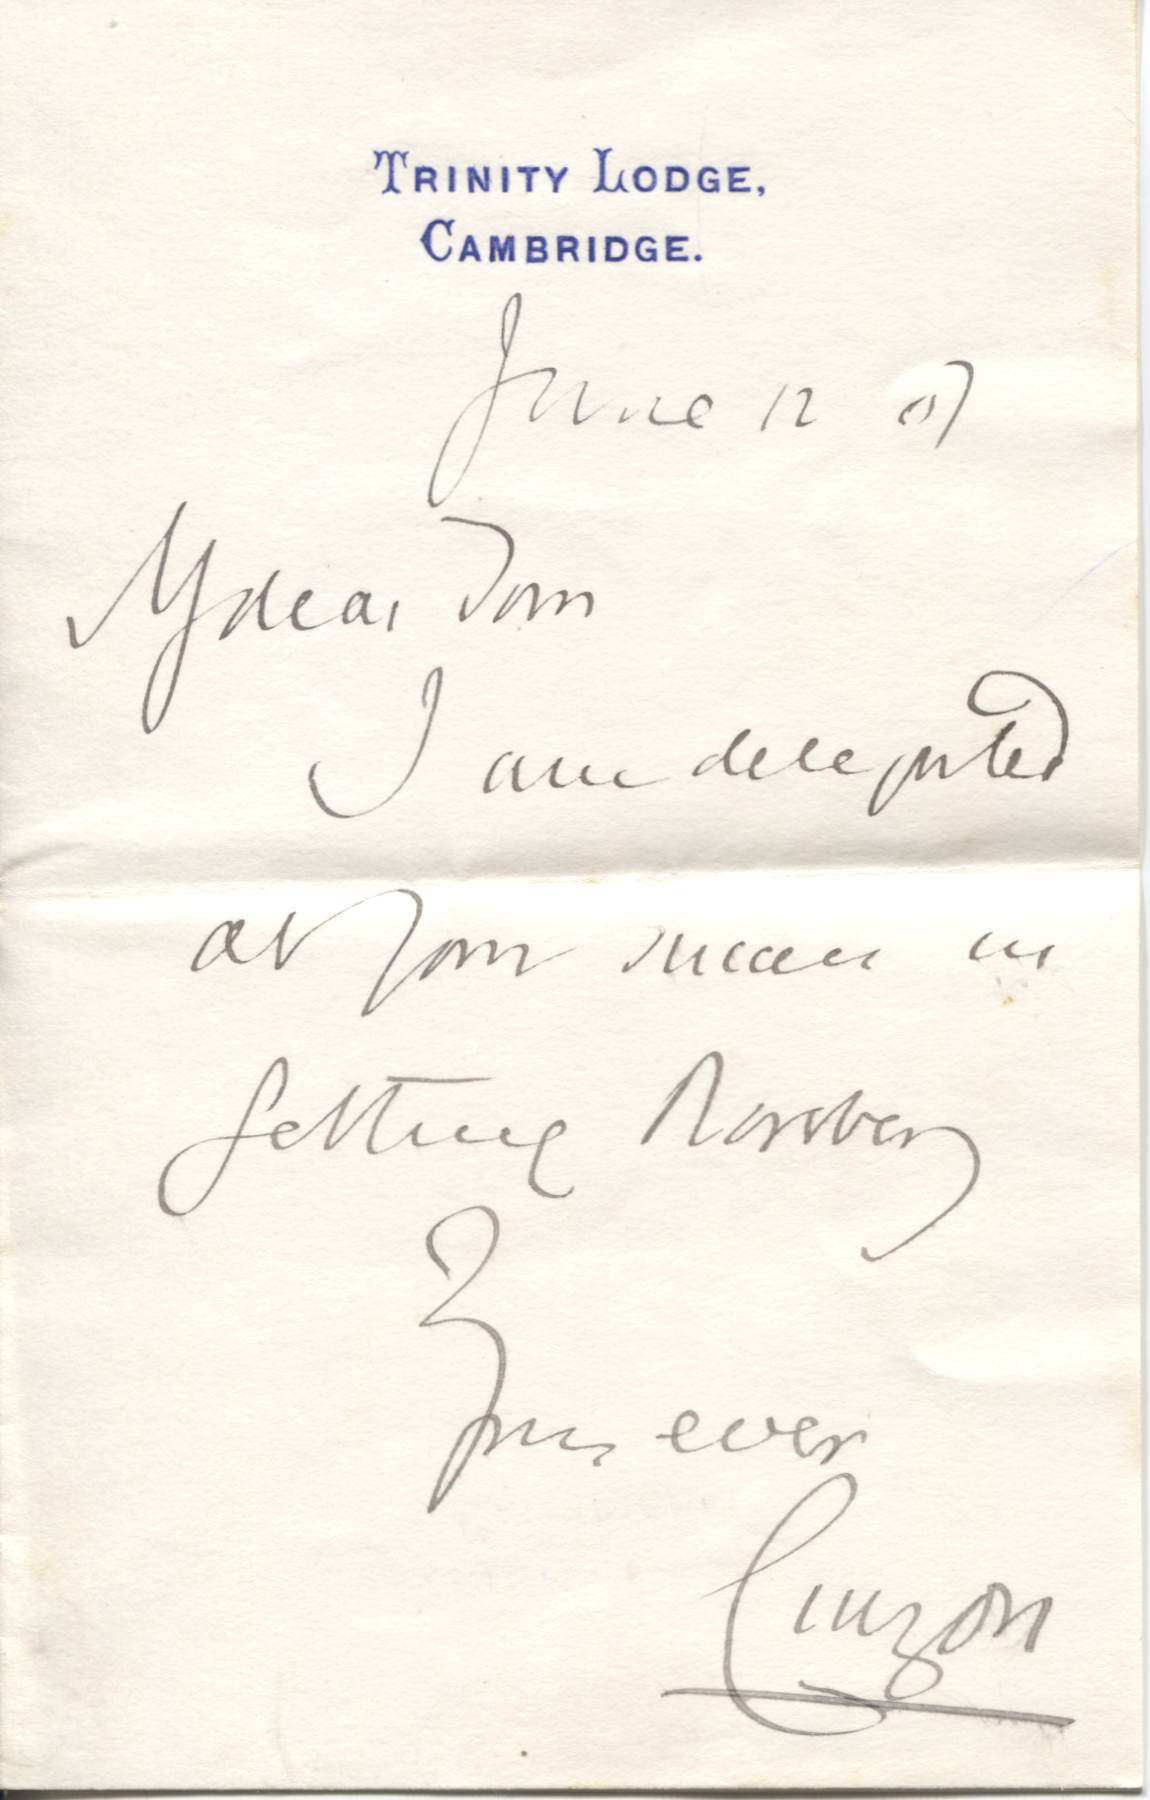 TRINITY LODGE,
CAMBRIDGE.
June 12 07
My dear Tom
I am delighted
at your success in
getting Rosebery
Yours ever
Curzon